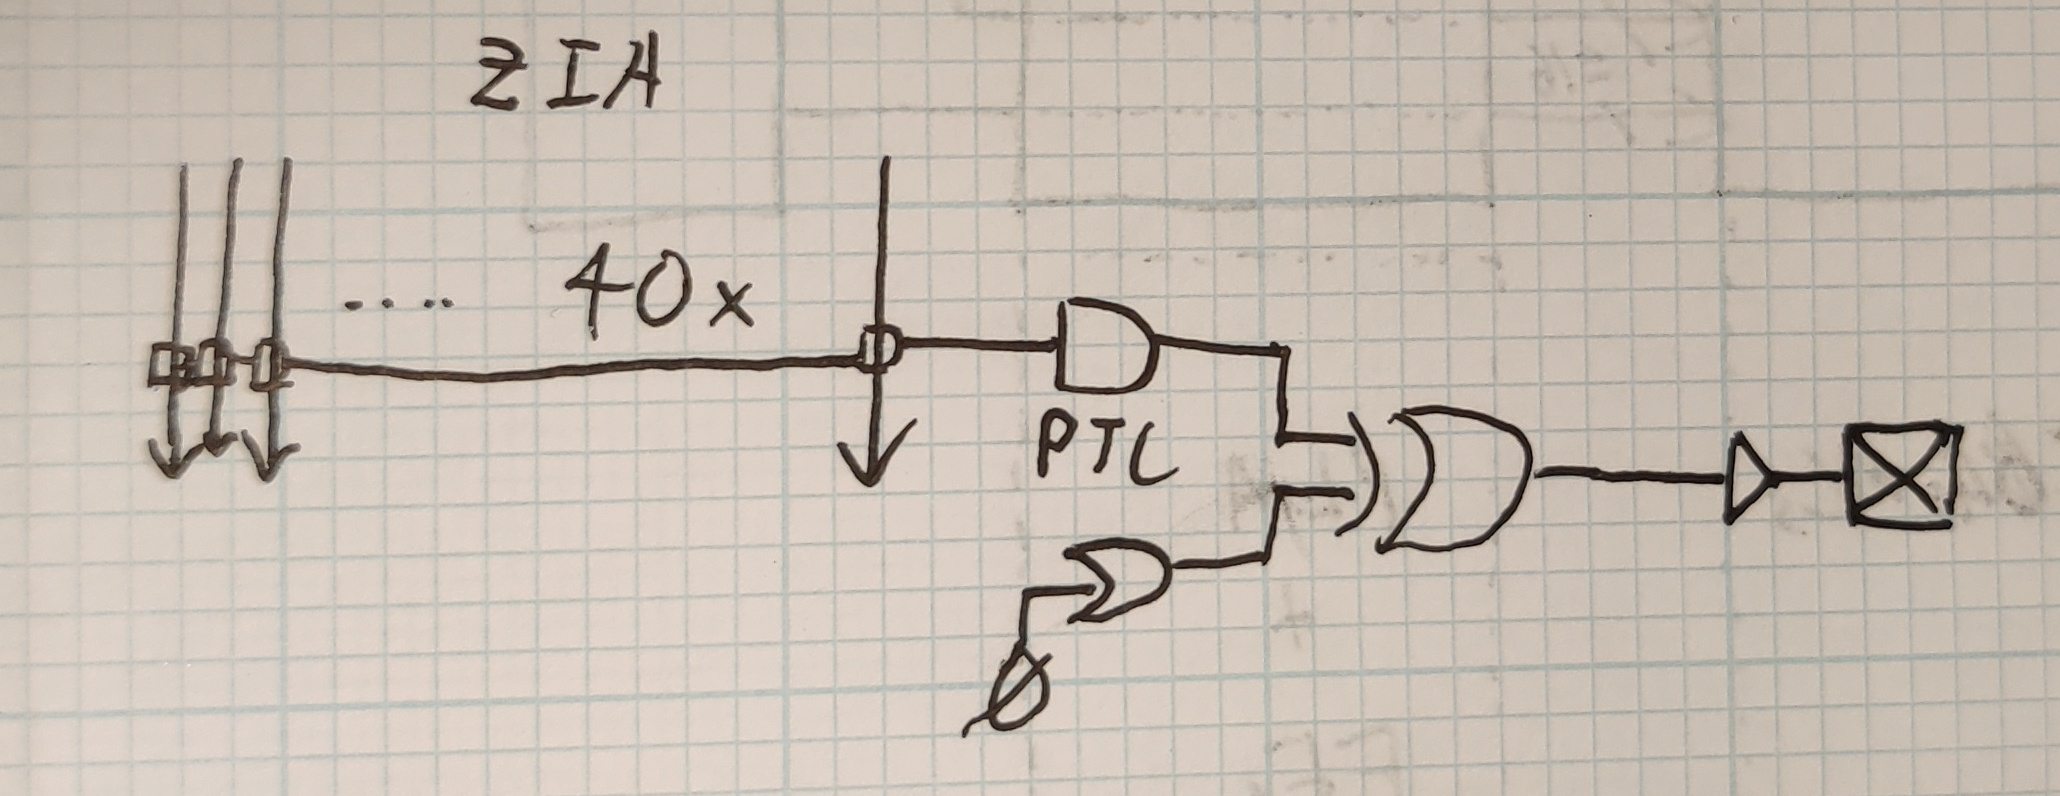 ZIA
.... 40x
PTC
Ø